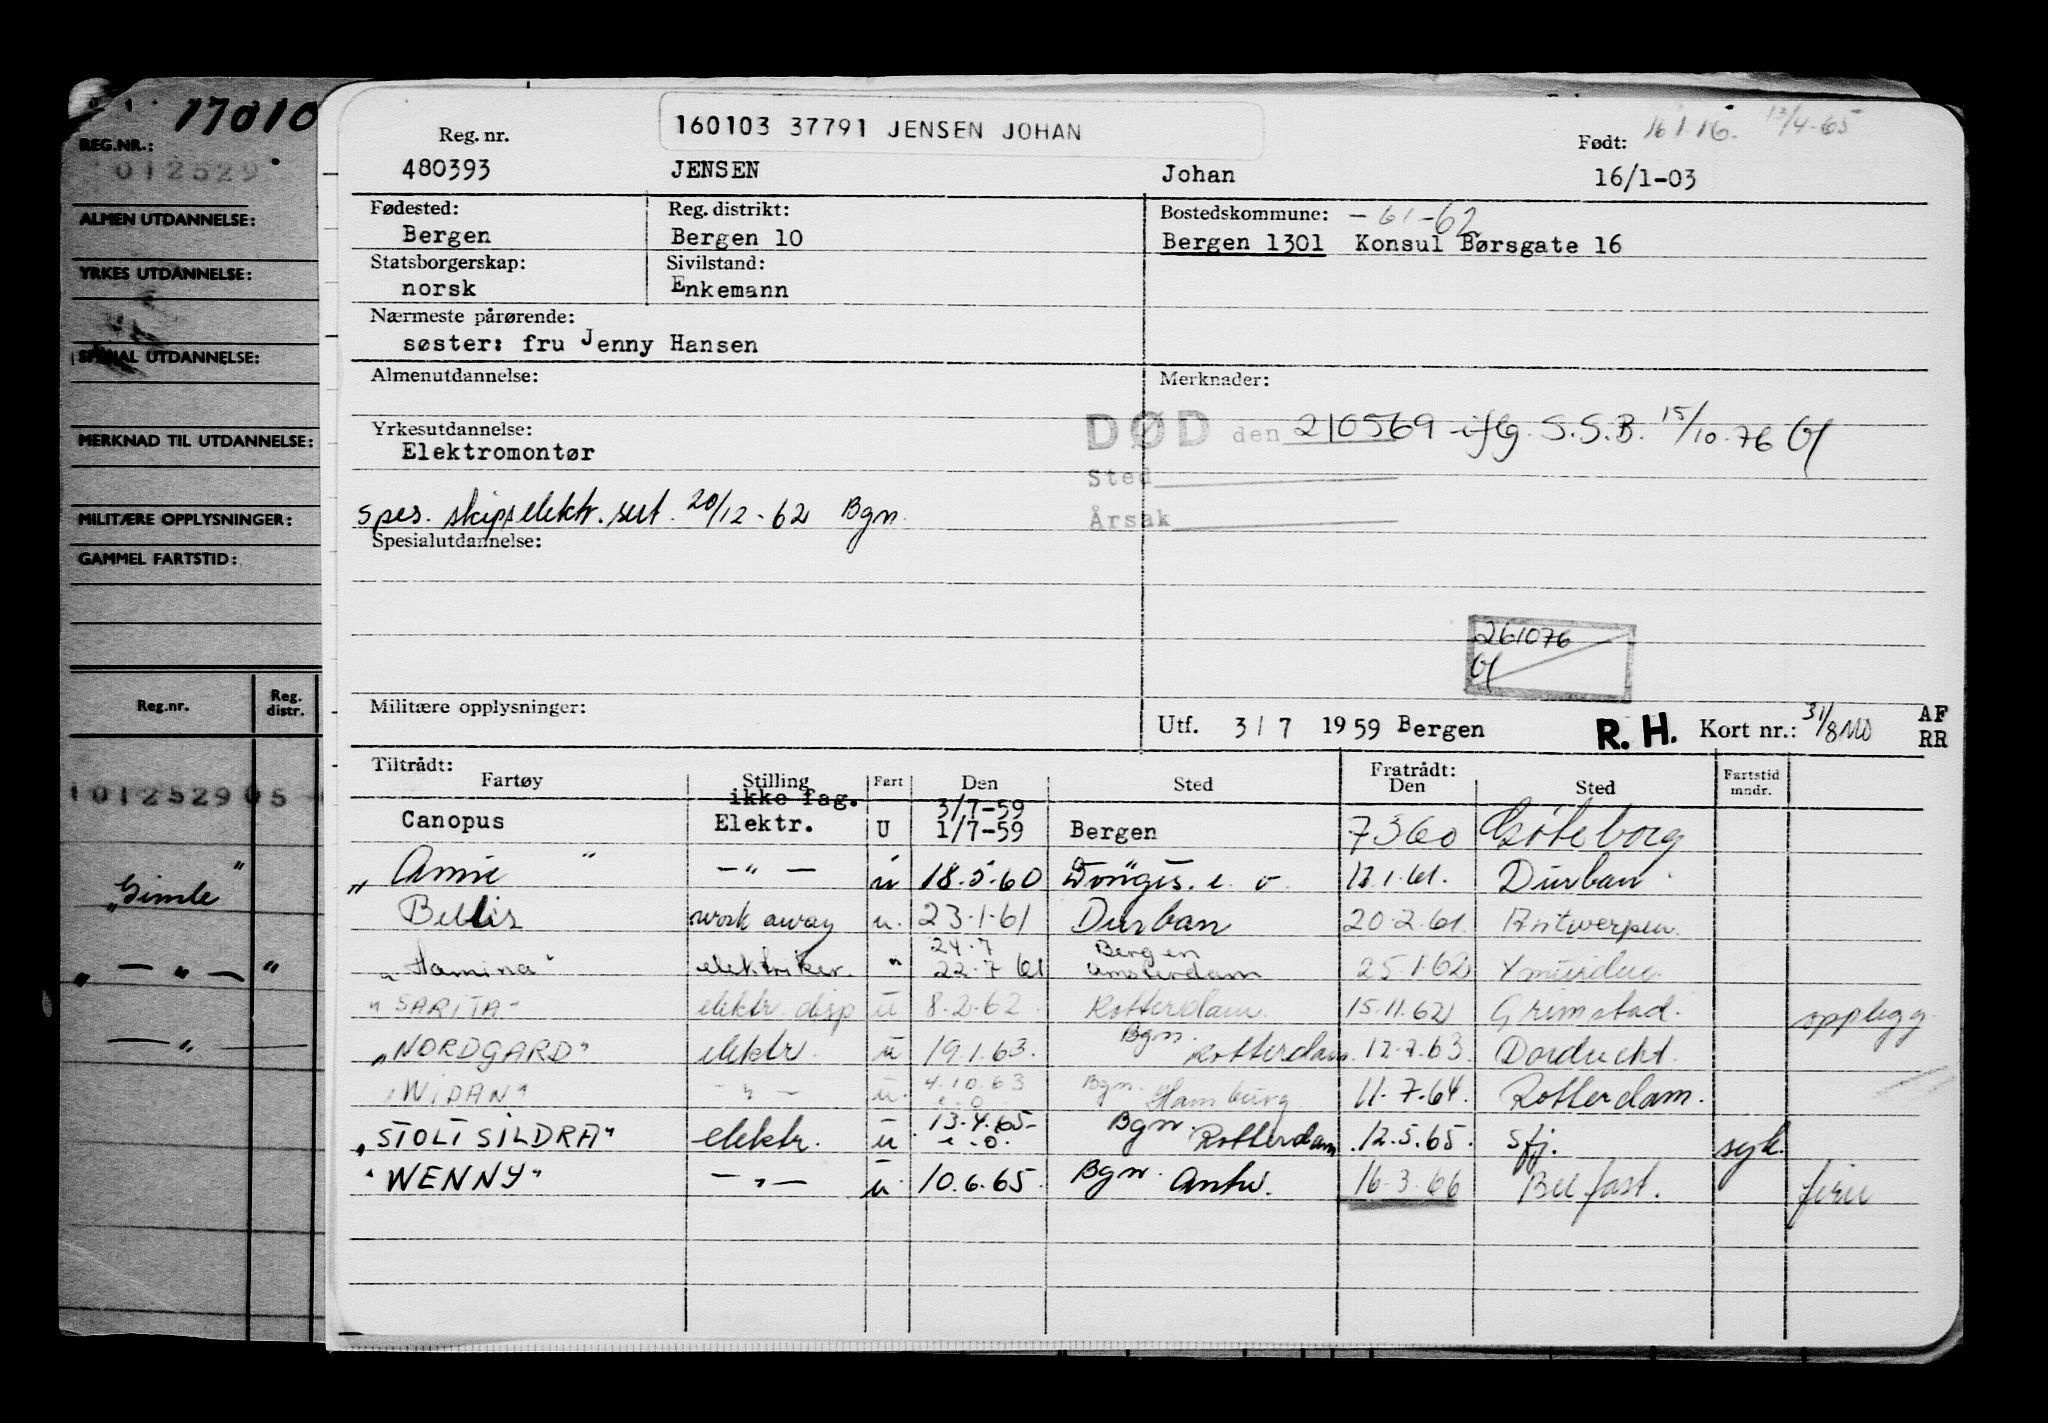 17010
REG.NR.:
012529
ALMEN UTDANNELSE:
YRKES UTDANNELSE:
SPESIAL UTDANNELSE:
MERKNAD TIL UTDANNELSE:
MILITÆRE OPPLYSNINGER:
GAMMEL FARTSTID:
Reg.nr. Reg. distr.
101252905
"Gimle"
" — " — "
— " —
160103 37791 JENSEN JOHAN
16 1 16. 13/4-65
Reg. nr. Født:
480393 JENSEN Johan 16/1-03
Fødested: Reg. distrikt: Bostedskommune: -61-62
Bergen Bergen 10 Bergen 1301 Konsul Børsgate 16
Statsborgerskap: Sivilstand:
norsk Enkemann
Nærmeste pårørende:
søster: fru Jenny Hansen
Almenutdannelse: Merknader:
Yrkesutdannelse: DØD den 210569 iflg. S.S.B. 15/10-76
Elektromontør
Sted
spes. skipselektr. sert. 20/12-62 Bgn.
Årsak
Spesialutdannelse:
261076
Militære opplysninger:
Utf. 3/7 1959 Bergen R. H. Kort nr.: 31/8 AF RR
Tiltrådt: Fratrådt:
Fartøy Stilling Fart Den Sted Den Sted Fartstid mndr.
ikke fag. 3/7-59
Canopus Elektr. U 1/7-59 Bergen 7360 Gøteborg
" Anne " — " — u 18.5.60 Donges. e. o. 12.1.61. Durban
Bellis work away u. 23.1.61 Durban 20.2.61. Antwerpen.
24.7 Bergen
"Hamina" elektriker " 22.7 61 Amsterdam 25.1.62 Ymuiden
"SARITA" elektr. disp u 8.2.62. Rotterdam. 15.11.62 Grimstad. opplegg.
"NORDGARD" elektr. u 19.1.63. Bgn. Rotterdam. 12.7.63. Dordrecht.
"WIDAN" — " — u. 4.10.63 e.o. Bgn. Hamburg 11.7.64. Rotterdam.
"STOLT SILDRA" elektr. u 13.4.65 e.o. Bgn. Rotterdam. 12.5.65. Sfj. syk.
"WENNY" — " — u 10.6.65. Bgn. Antw. 16.3.66 Belfast. ferie